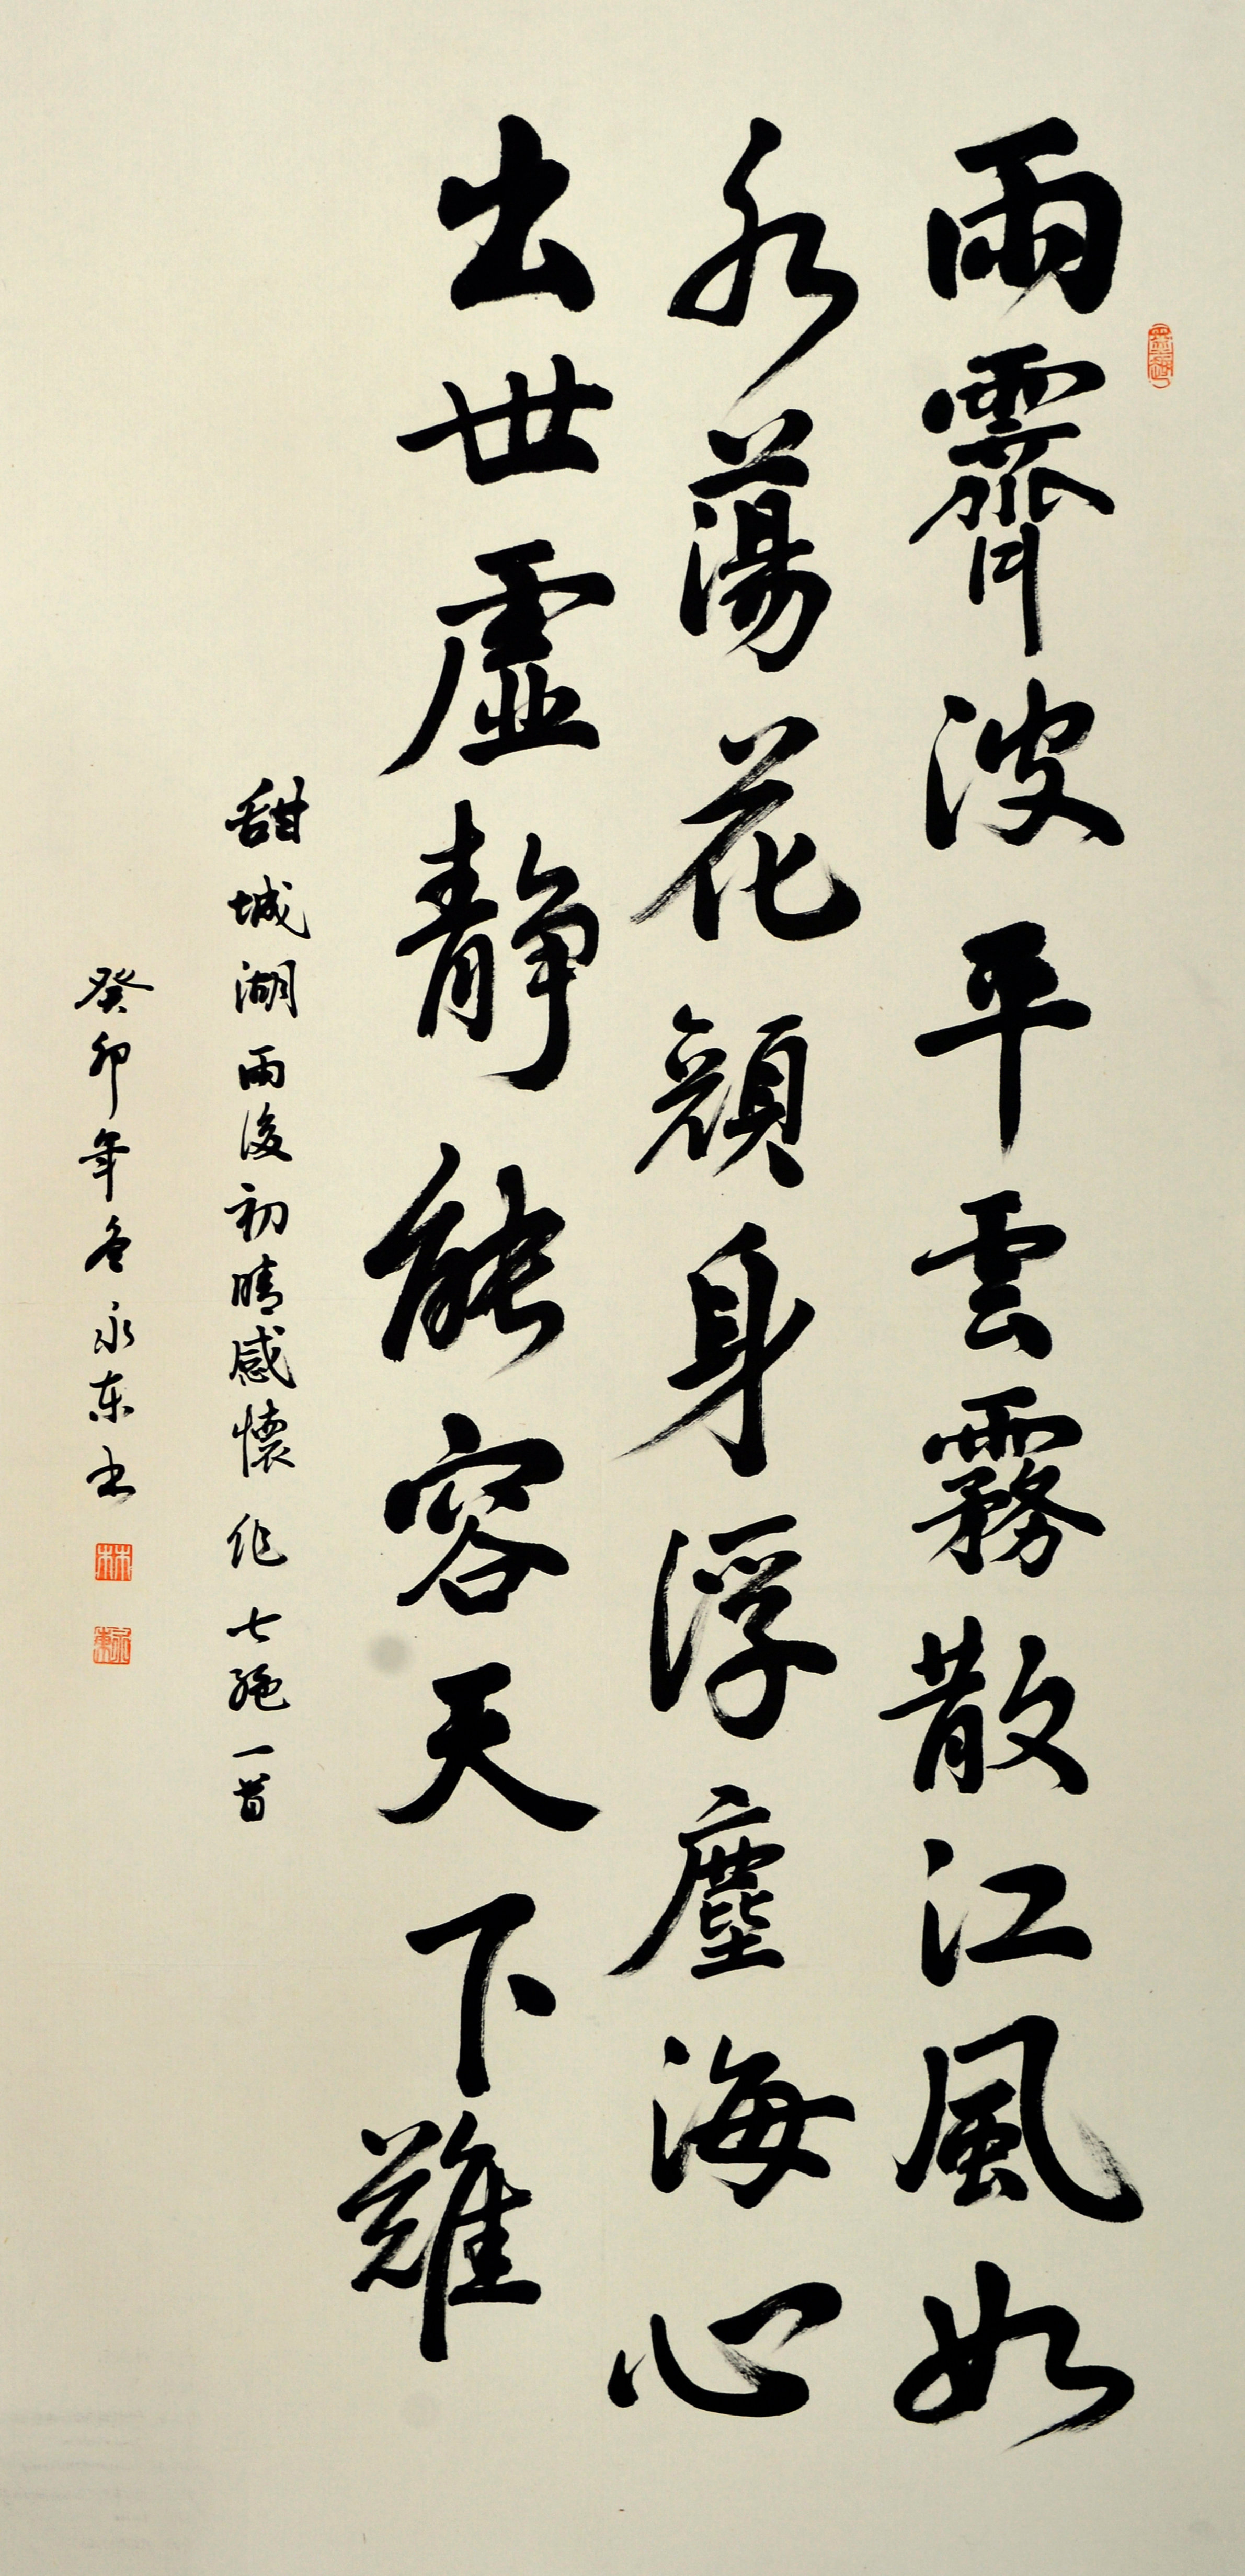 雨霽波平雲霧散江風如
水蕩花顔身浮塵海心
出世虛靜能容天下難
甜城湖雨後初晴感懷作七絕一首
癸卯年冬永东书
林
永東